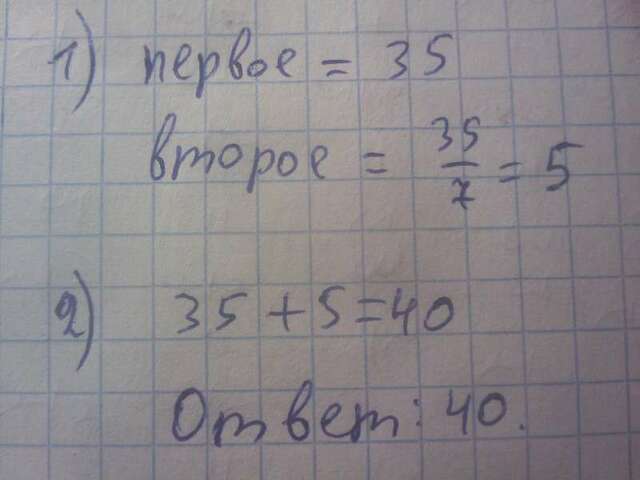 1) первое = 35
второе = 35/7 = 5
2) 35 + 5 = 40
Ответ: 40.